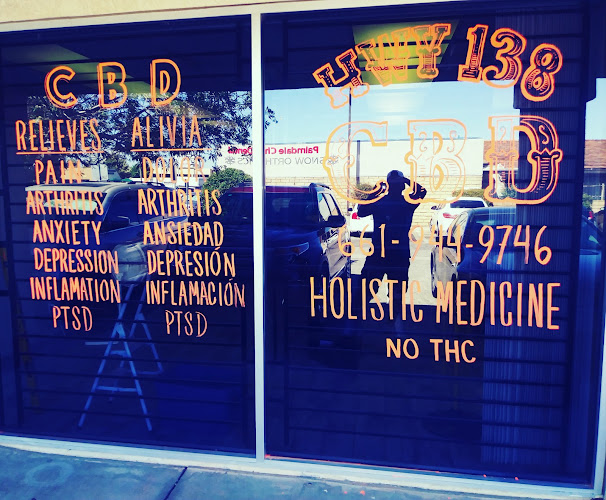 CBD
RELIEVES ALIVIA
PAIN DOLOR
ARTHRITIS ARTHRITIS
ANXIETY ANSIEDAD
DEPRESSION DEPRESIÓN
INFLAMATION INFLAMACIÓN
PTSD PTSD
HWY 138
CBD
661-944-9746
HOLISTIC MEDICINE
NO THC
Palmdale
SNOW